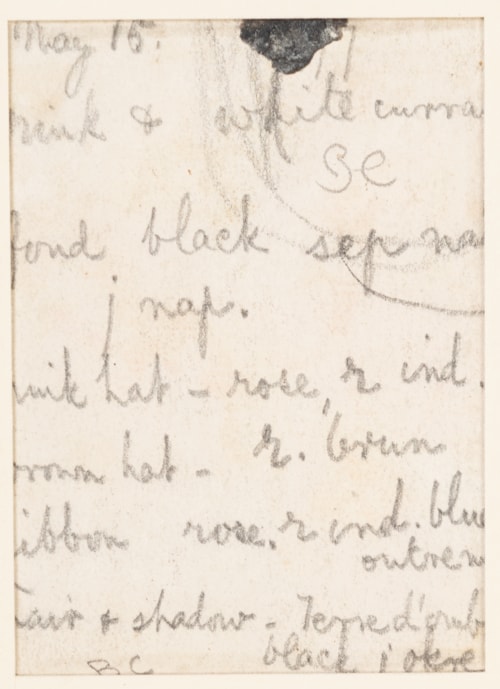 May 15.
rink & white curra
BC
fond black sep na
j nap.
unik hat - rose, r ind.
r. brun
rown hat -
ibbon rose. r ind. blue
outrem
hair & shadow - Terre d'omb
black j okre
BC